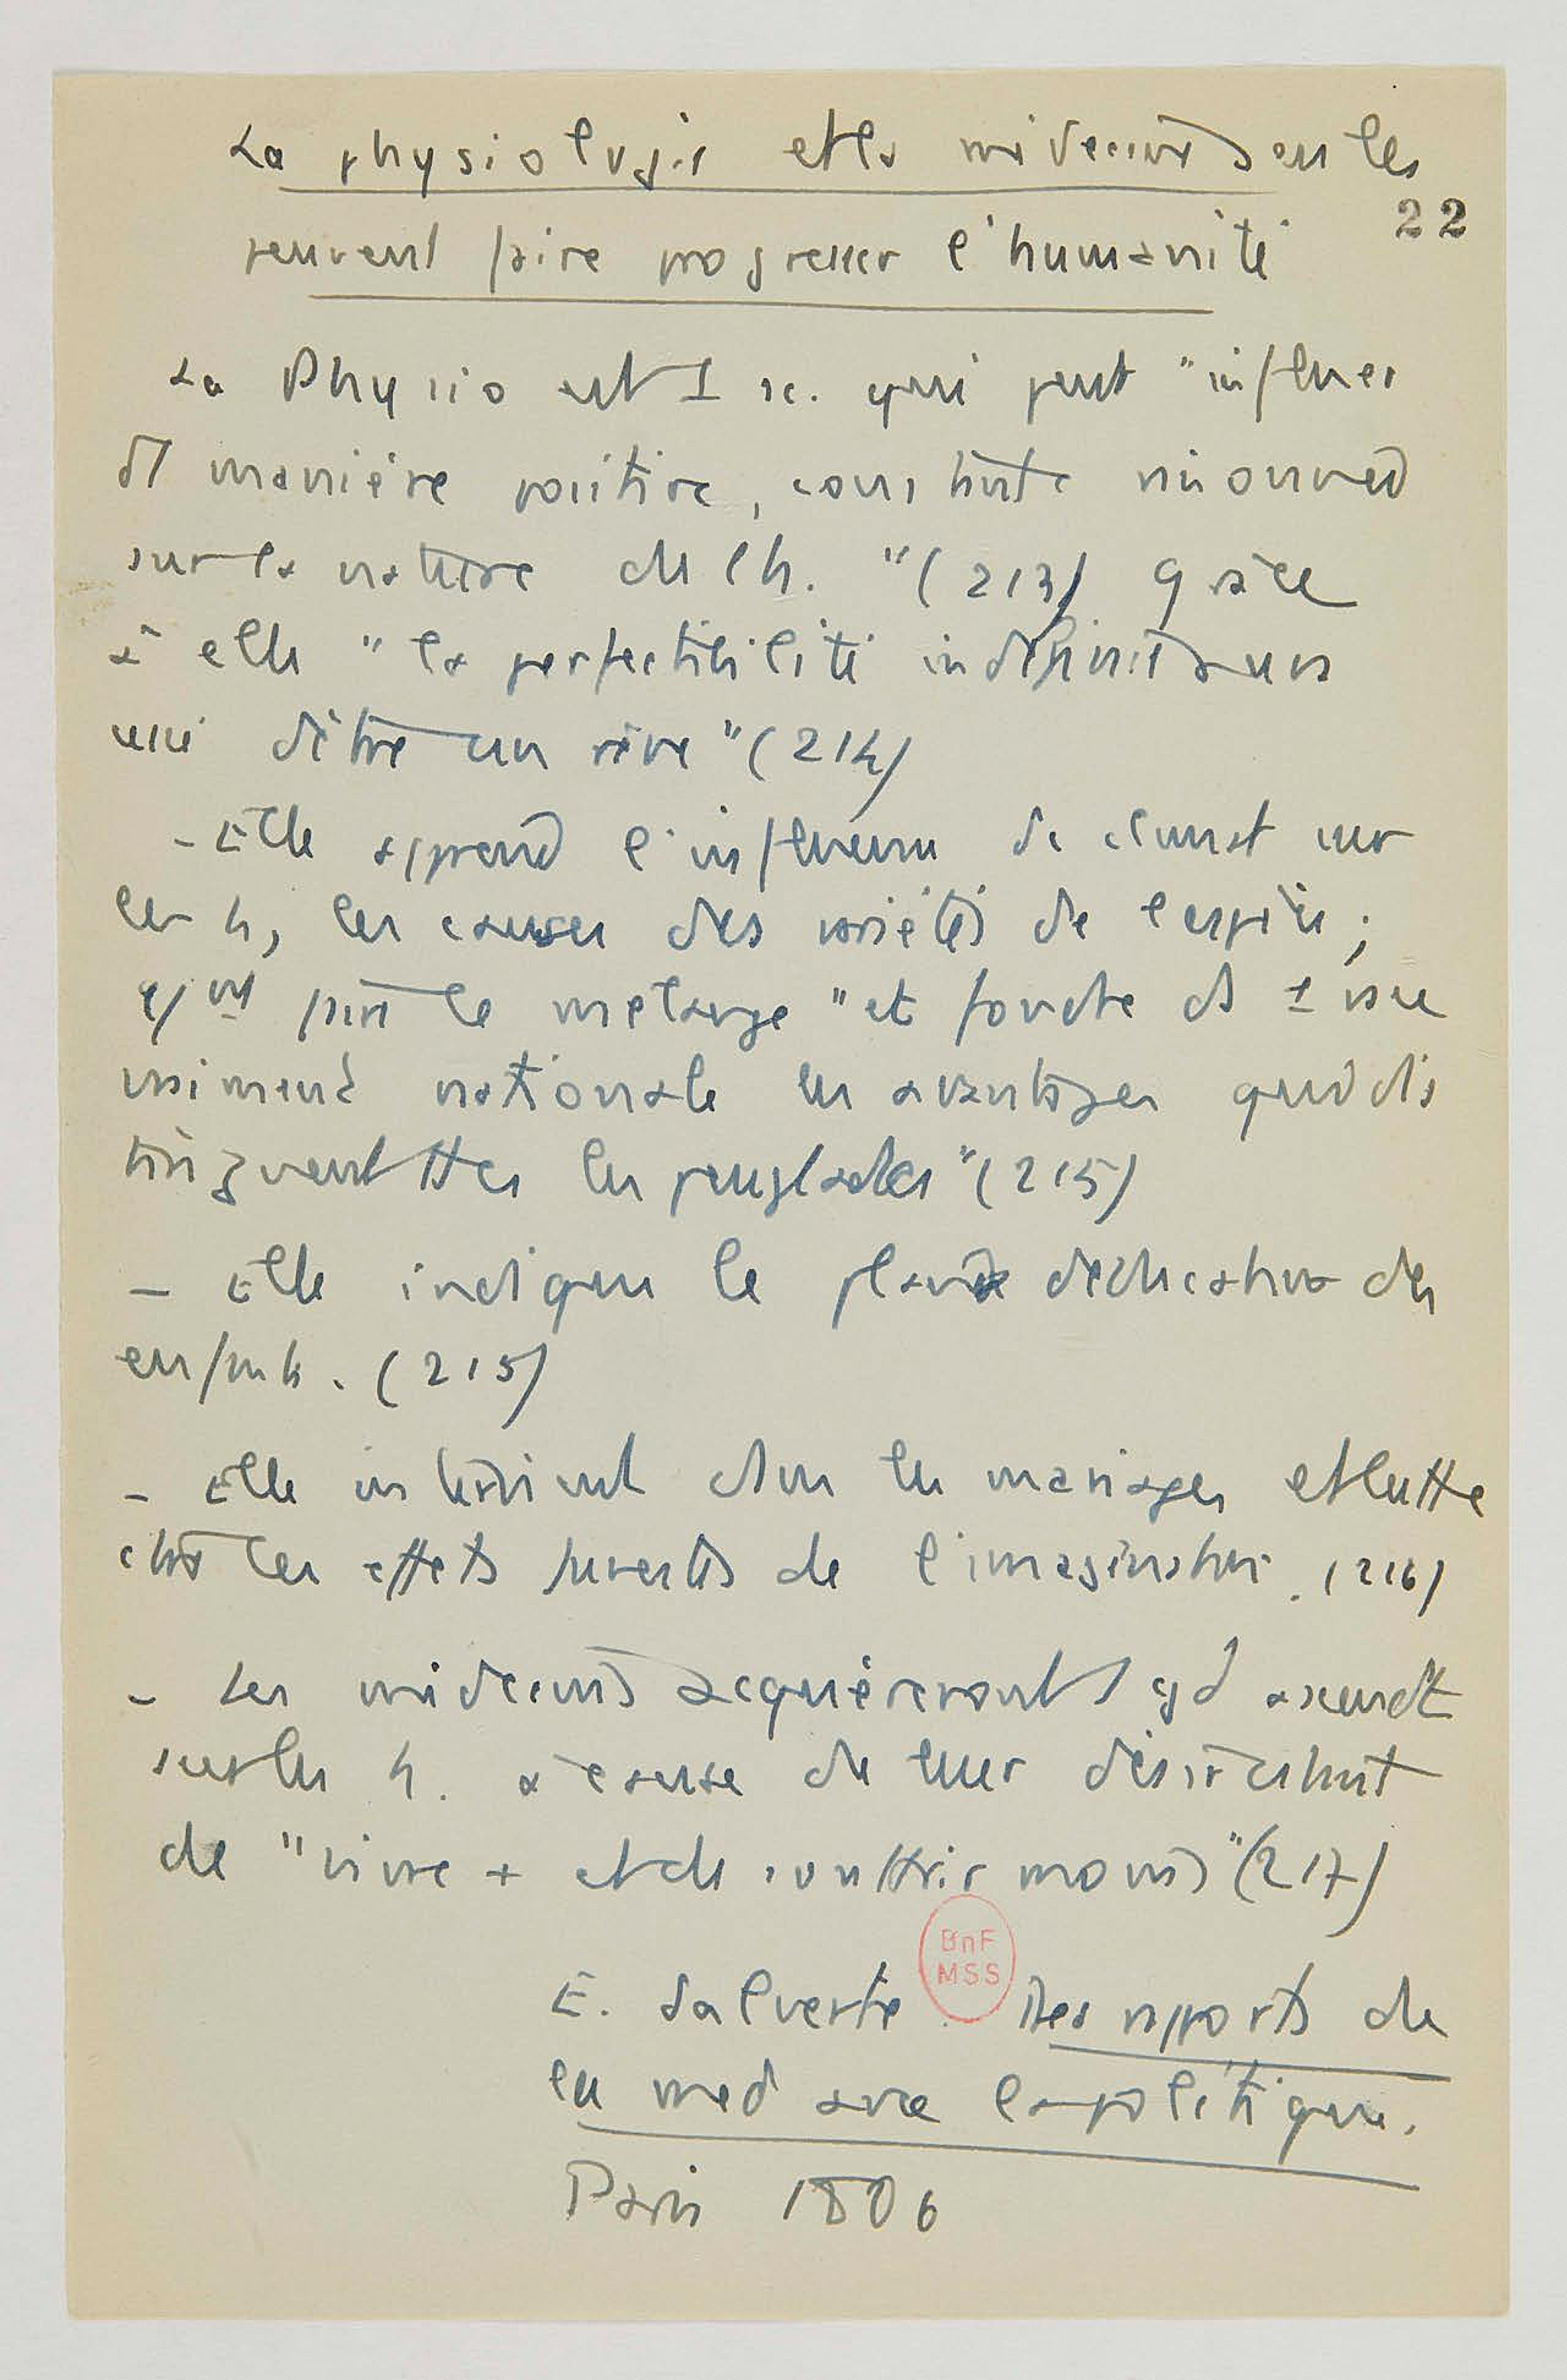 La physiologie et la médecine seules
22
peuvent faire progresser l'humanité
La Physio est 1 sc. qui peut "influer
d1 manière positive, constante
sur la nature de l'h." (213) grâce
à elle "la perfectibilité indéfinie
d'être un rêve" (214)
- Elle apprend l'influence du climat sur
les h, les causes des variétés de l'espèce ;
le mélange "et fondre ds 1 race
vraiment nationale les avantages qui dis
tinguent ttes les peuplades" (215)
- Elle indique le plan d'éducation des
enfants. (215)
- Elle intervient dans les mariages et lutte
ctre les effets funestes de l'imagination. (216)
- Les médecins acquièreront 1 gd ascendt
sur les h. à cause de leur désir
de "vivre + et de souffrir moins" (217)
BnF
MSS
E. Salverte. Des rapports de
la med avec la politique.
Paris 1806